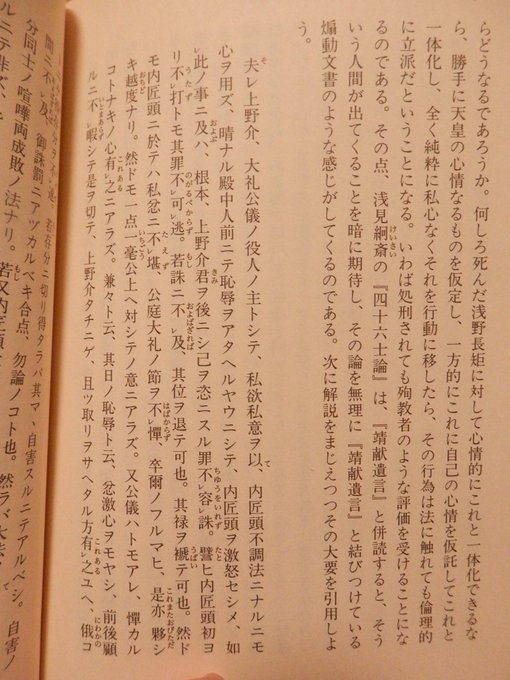 らどうなるであろうか。何しろ死んだ浅野長矩に対して心情的にこれと一体化できるな
ら、勝手に天皇の心情なるものを仮定し、一方的にこれに自己の心情を仮託してこれと
一体化し、全く純粋に私心なくそれを行動に移したら、その行為は法に触れても倫理的
に立派だということになる。いわば処刑されても殉教者のような評価を受けることにな
るのである。その点、浅見絅斎の『四十六士論』は、『靖献遺言』と併読すると、そう
いう人間が出てくることを暗に期待し、その論を無理に『靖献遺言』と結びつけている
煽動文書のような感じがしてくるのである。次に解説をまじえつつその大要を引用しよ
夫レ上野介、大礼公儀ノ役人ノ主トシテ、私欲私意ヲ以、内匠頭不調法ニナルニモ
心ヲ用ズ、晴ナル殿中人前ニテ恥辱ヲアタヘルヤウニシテ、内匠頭ヲ激怒セシメ、如
レ此ノ事ニ及ハ、根本、上野介君ヲ後ニシ己ヲ恣ニスル罪不レ容レ誅。譬ヒ内匠頭初ヨ
リ不レ打トモ其罪不レ可レ逃。若誅ニ不レ及、其位ヲ退テ可也。其禄ヲ褫テ可也。然ド
モ内匠頭ニ於テハ私忿ニ不レ堪、公庭大礼ノ節ヲ不レ憚、卒爾ノフルマヒ、是亦夥シ
キ越度ナリ。然ドモ一点一毫公上ヘ対シテノ意ニアラズ。又公儀ハトモアレ、憚カル
コトナキノ心有レ之ニアラズ。兼々ト云、其日ノ恥辱ト云、忿激心ヲモヤシ、前後顧
ルニ不レ暇シテ是ヲ切テ、上野介タチニゲ、且ツ取リヲサヘタル方有レ之ユヘ、俄コ
聞ニ不レ及、御誅罰ニアヅカルベキ合点、勿論ノコト也。然ラバ大
分同士ノ喧嘩両成敗ノ法ナリ。若又内匠頭
ルニテ非ズ、